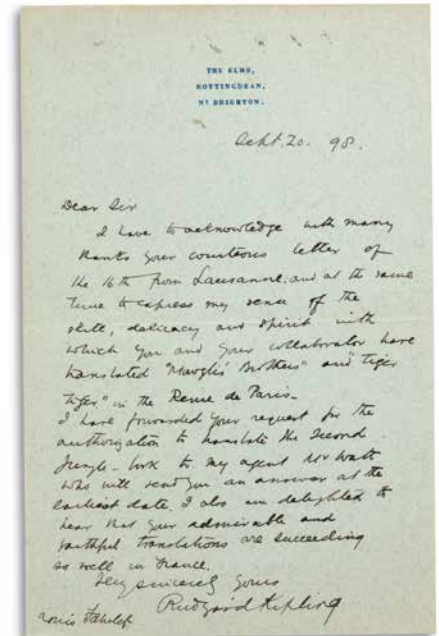 THE ELMS,
ROTTINGDEAN,
Nr BRIGHTON.
Sept. 20. 98.
Dear Sir
I have to acknowledge with many
thanks your courteous letter of
the 16th from Lausanne. and at the same
time to express my sense of the
skill, delicacy and spirit with
which you and your collaborator have
translated "Mowgli's Brothers" and "Tiger
Tiger" in the Revue de Paris.
I have forwarded your request for the
authorization to translate the Second
Jungle-book to my agent Mr Watt
who will send you an answer at the
earliest date. I also am delighted to
hear that your admirable and
faithful translations are succeeding
so well in France.
Very sincerely yours
Rudyard Kipling
Louis